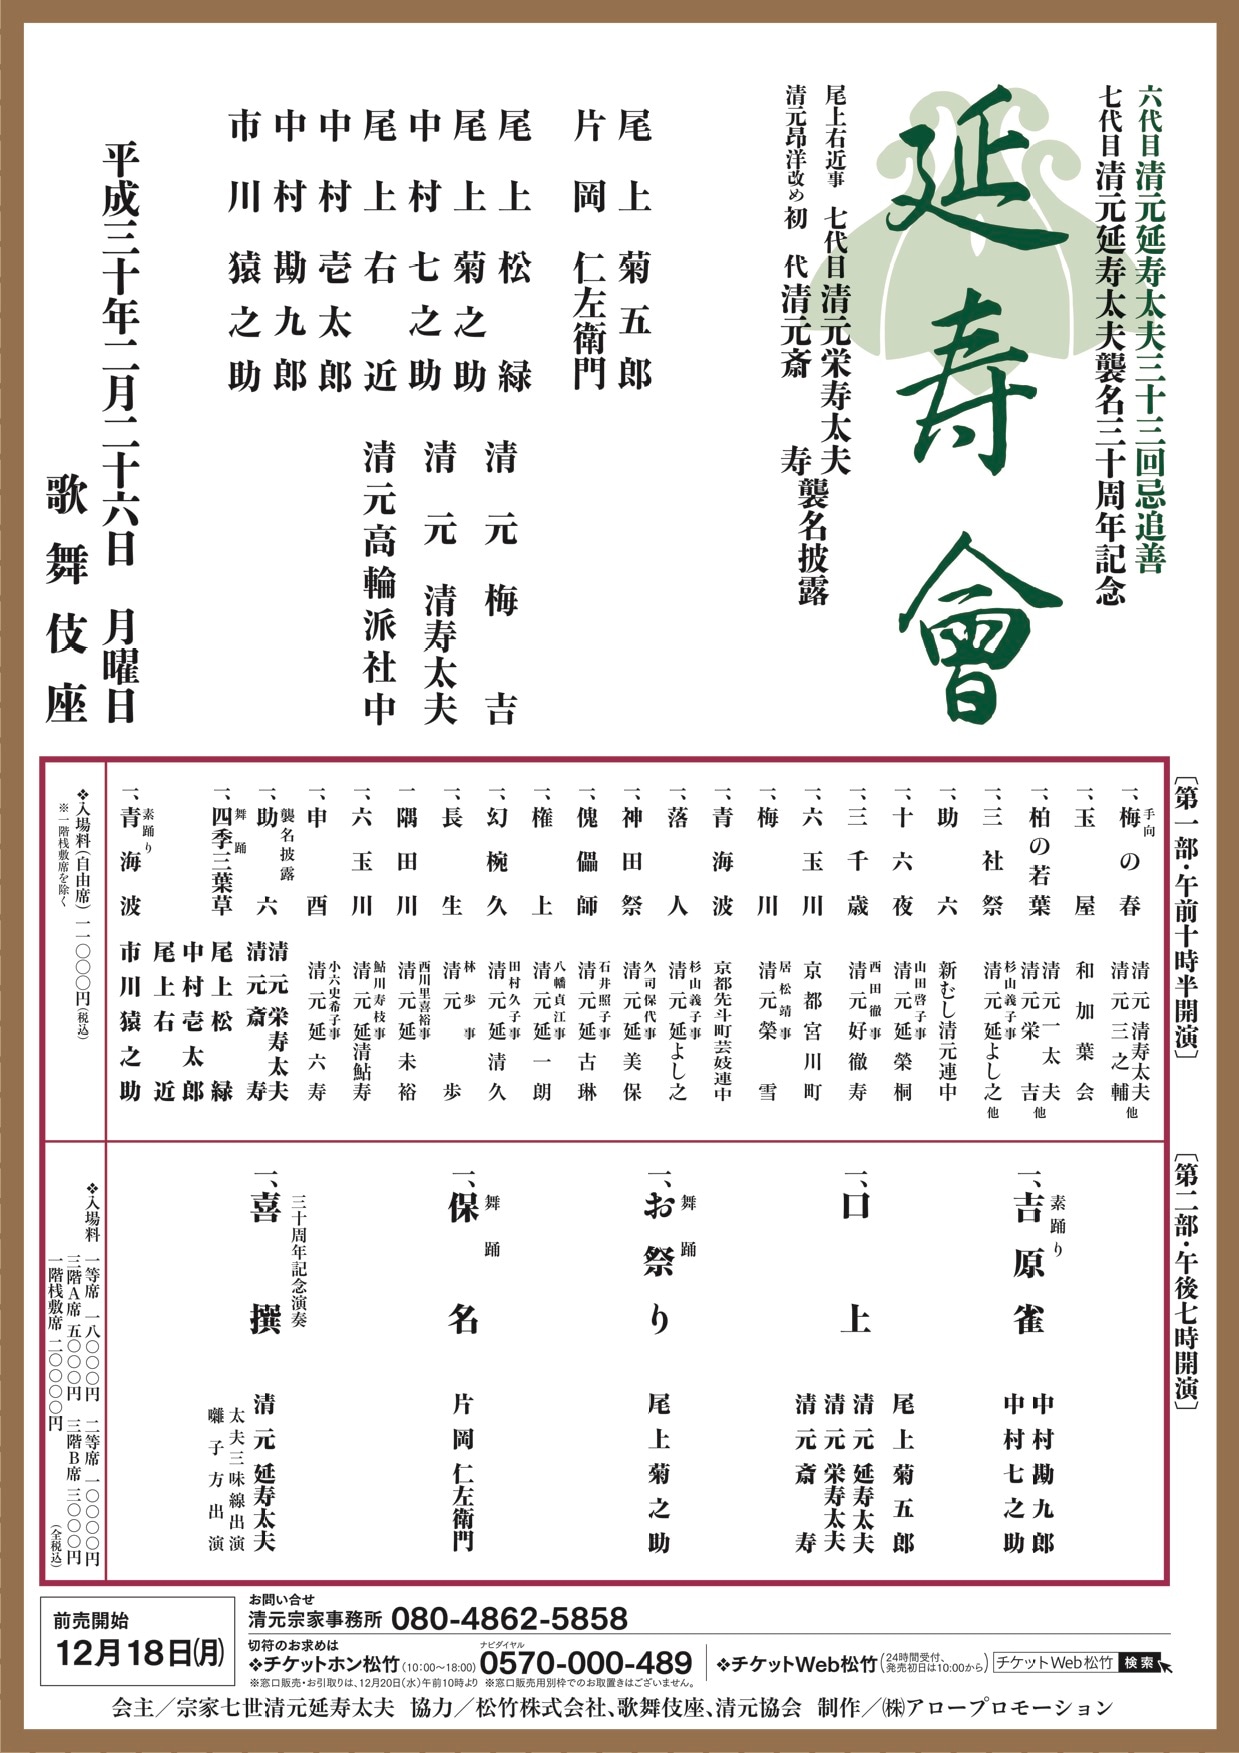 六代目清元延寿太夫三十三回忌追善
七代目清元延寿太夫襲名三十周年記念
延寿會
尾上右近事 七代目清元栄寿太夫
清元昂洋改め初代清元斎寿
襲名披露
尾上菊五郎
片岡仁左衛門
尾上松緑
尾上菊之助
中村七之助
尾上右近
中村壱太郎
中村勘九郎
市川猿之助
清元梅吉
清元清寿太夫
清元高輪派社中
平成三十年二月二十六日 月曜日
歌舞伎座
〔第一部・午前十時半開演〕
手向
一、梅の春 清元清寿太夫 清元三之輔 他
一、玉屋 和加葉会
一、柏の若葉 清元一太夫 清元栄吉 他
一、三社祭 杉山義子事 清元延よし之 他
一、助六 新むし清元連中
一、十六夜 山田啓子事 清元延榮桐
一、三千歳 西田徹事 清元好徹寿
一、六玉川 京都宮川町
一、梅川 居松靖事 清元榮雪
一、青海波 京都先斗町芸妓連中
一、落人 杉山義子事 清元延よし之
一、神田祭 久司保代事 清元延美保
一、傀儡師 石井照子事 清元延古琳
一、権上 八幡貞江事 清元延一朗
一、幻椀久 田村久子事 清元延清久
一、長生 林歩事 清元歩
一、隅田川 西川里喜裕事 清元延未裕
一、六玉川 鮎川寿枝事 清元延清鮎寿
一、申酉 小六史希子事 清元延六寿
襲名披露
一、助六 清元栄寿太夫 清元斎寿
舞踊
一、四季三葉草 尾上松緑 中村壱太郎 尾上右近
素踊り
一、青海波 市川猿之助
❖入場料(自由席)一一〇〇〇円(税込)
※一階桟敷席を除く
〔第二部・午後七時開演〕
素踊り
一、吉原雀 中村勘九郎 中村七之助
一、口上 尾上菊五郎 清元延寿太夫 清元栄寿太夫 清元斎寿
舞踊
一、お祭り 尾上菊之助
舞踊
一、保名 片岡仁左衛門
三十周年記念演奏
一、喜撰 清元延寿太夫
太夫三味線出演
囃子方出演
❖入場料 一等席 一八〇〇〇円 二等席 一〇〇〇〇円
三階A席 五〇〇〇円 三階B席 三〇〇〇円
一階桟敷席 二〇〇〇〇円 (全税込)
前売開始
12月18日(月)
お問い合せ
清元宗家事務所 080-4862-5858
切符のお求めは
❖チケットホン松竹(10:00〜18:00) ナビダイヤル 0570-000-489
❖チケットWeb松竹(24時間受付、発売初日は10:00から) チケットWeb松竹 検索
※窓口販売・お引取りは、12月20日(水)午前10時より ※窓口販売用別枠でのお取置きはございません。
会主／宗家七世清元延寿太夫 協力／松竹株式会社、歌舞伎座、清元協会 制作／㈱アロープロモーション